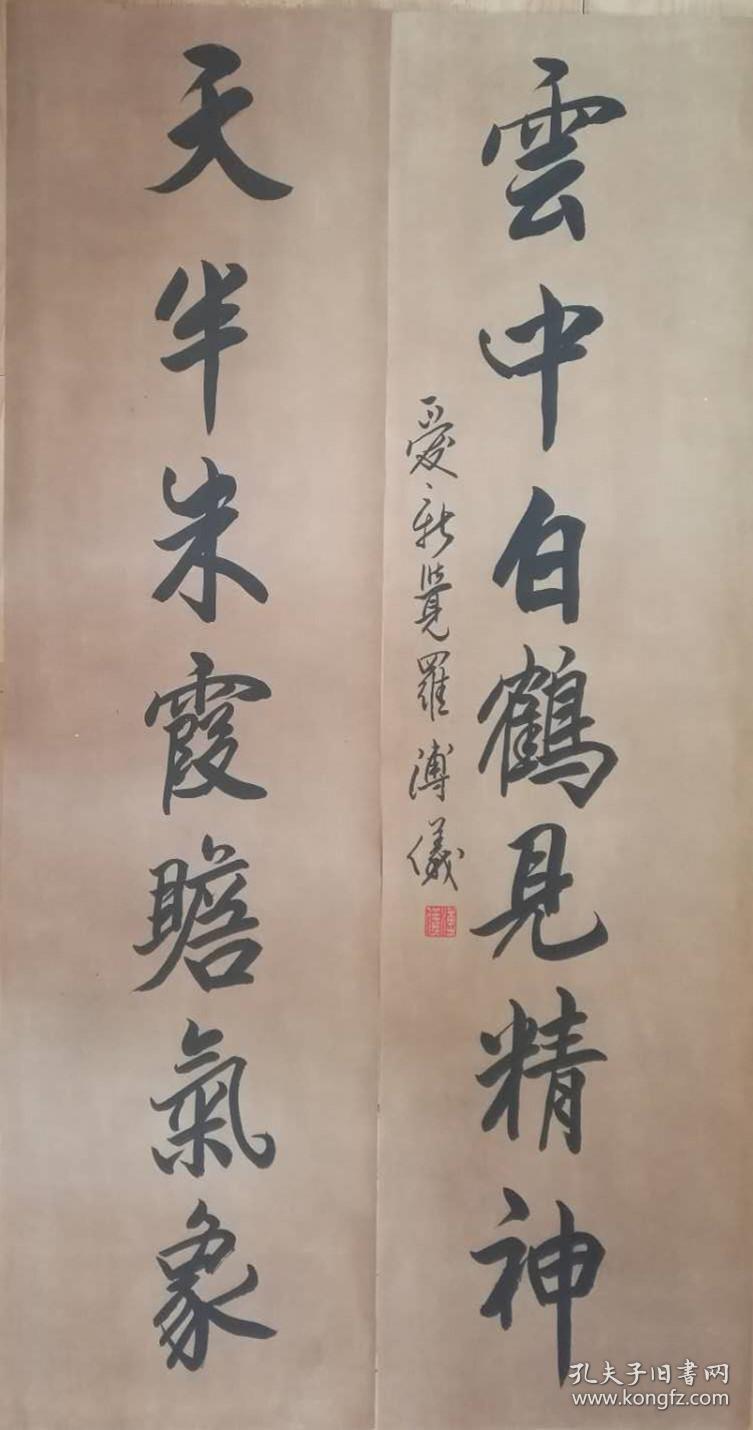 雲中白鶴見精神
愛新覺羅溥儀
天半朱霞瞻氣象
孔夫子旧書网
www.kongfz.com